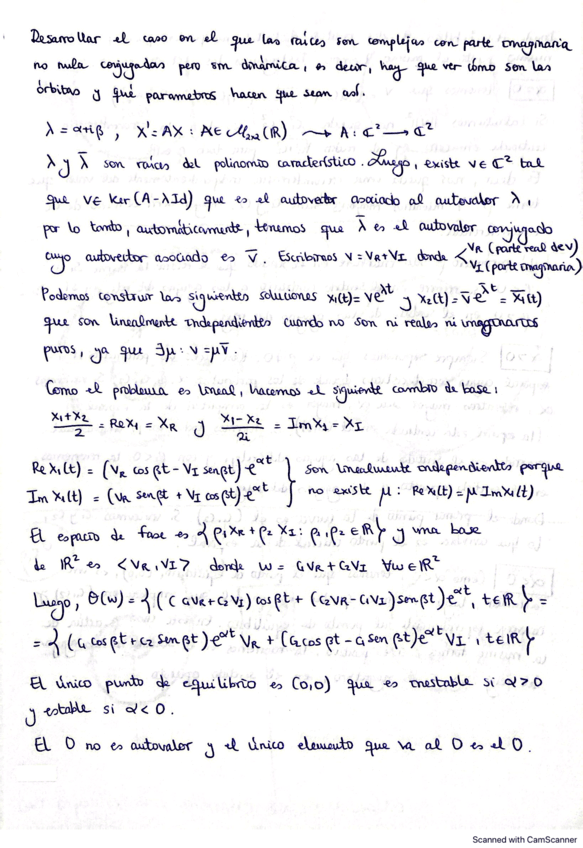 Desarrollar el caso en el que las raíces son complejas con parte imaginaria
no nula conjugadas pero sin dinámica, es decir, hay que ver cómo son las
órbitas y qué parametros hacen que sean así.
λ = α+iβ , X' = AX : A ∈ M₂ₓ₂(ℝ) ⇝ A : ℂ² → ℂ²
λ y λ̄ son raíces del polinomio característico. Luego, existe v ∈ ℂ² tal
que v ∈ Ker(A-λId) que es el autovector asociado al autovalor λ,
por lo tanto, automáticamente, tenemos que λ̄ es el autovalor conjugado
cuyo autovector asociado es v̄. Escribimos v = V_R + V_I donde < V_R (parte real de v)
V_I (parte imaginaria)
Podemos construir las siguientes soluciones x₁(t) = v e^{λt} y x₂(t) = v̄ e^{λ̄t} = x̄₁(t)
que son linealmente independientes cuando no son ni reales ni imaginarios
puros, ya que ∃μ : v = μv̄.
Como el problema es lineal, hacemos el siguiente cambio de base:
(x₁+x₂)/2 = Re x₁ = X_R y (x₁-x₂)/2i = Im x₁ = X_I
Re x₁(t) = (V_R cos βt - V_I sen βt) e^{αt} } son linealmente independientes porque
Im x₁(t) = (V_R sen βt + V_I cos βt) e^{αt} } no existe μ : Re x₁(t) = μ Im x₁(t)
El espacio de fase es { ρ₁X_R + ρ₂X_I : ρ₁, ρ₂ ∈ ℝ } y una base
de ℝ² es <V_R, V_I> donde w = c₁V_R + c₂V_I ∀w ∈ ℝ²
Luego, θ(w) = { ((c₁V_R + c₂V_I) cos βt + (c₂V_R - c₁V_I) sen βt) e^{αt}, t ∈ ℝ } =
= { (c₁ cos βt + c₂ sen βt) e^{αt} V_R + (c₂ cos βt - c₁ sen βt) e^{αt} V_I, t ∈ ℝ }
El único punto de equilibrio es (0,0) que es inestable si α > 0
y estable si α < 0.
El 0 no es autovalor y el único elemento que va al 0 es el 0.
Scanned with CamScanner